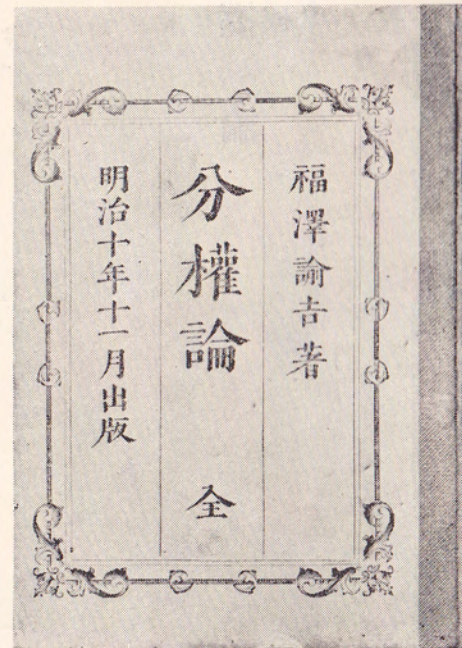 福澤諭吉著
分權論 全
明治十年十一月出版